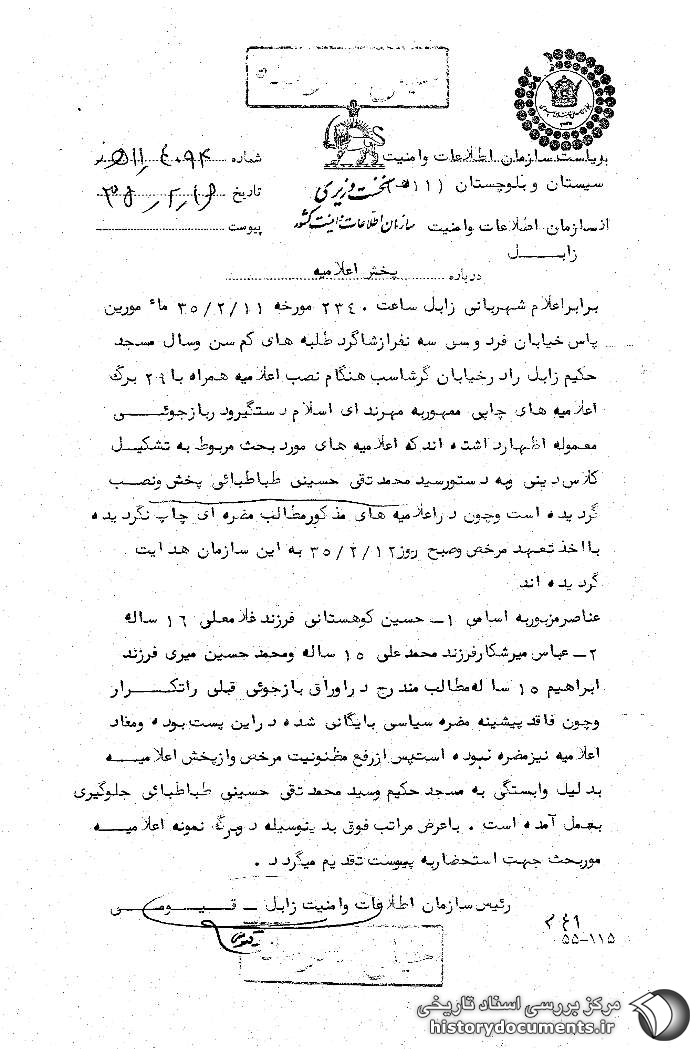 خیلی محرمانه
بریاست سازمان اطلاعات وامنیت
سیستان و بلوچستان (۵۱۱)
نخست وزیری
سازمان اطلاعات و امنیت کشور
شماره
تاریخ
پیوست
از سازمان اطلاعات وامنیت
زابــل
درباره پخش اعلامیه
برابراعلام شهربانی زابل ساعت ۲۳۴۰ مورخه ۳۵/۲/۱۱ مامورین
پاس خیابان فردوسی سه نفرازشاگرد طلبه های کم سن وسال مسجد
حکیم زابل راد رخیابان گرشاسب هنگام نصب اعلامیه همراه با ۲۹ برگ
اعلامیه های چاپی ممهوربه مهرندای اسلام دستگیرود ربازجوئــی
معموله اظهارد اشته اندکه اعلامیه های مورد بحث مربوط به تشکیل
کلاس دینی وبه دستورسید محمد تقی حسینی طباطبائی پخش ونصب
گردیده است وچون دراعلامیه های مذکورمطالب مضره ای چاپ نگردیده
بااخذ تعهد مرخص وصبح روز ۳۵/۲/۱۲ به این سازمان هدایت
گردیده اند
عناصرمزبوربه اسامی ۱- حسین کوهستانی فرزند غلامعلی ۱۶ ساله
۲- عباس میرشکارفرزند محمدعلی ۱۵ ساله ومحمد حسین میری فرزند
ابراهیم ۱۵ ساله مطالب مندرج دراوراق بازجوئی قبلی راتکــرار
وچون فاقد پیشینه مضره سیاسی بایگانی شده دراین پست بوده ومفاد
اعلامیه نیزمضره نبوده است پس ازرفع مظنونیت مرخص وازپخش اعلامیــه
بدلیل وابستگی به مسجد حکیم وسید محمد تقی حسینی طباطبائی جلوگیری
بعمل آمده است . باعرض مراتب فوق بدینوسیله دوبرگ نمونه اعلامیــه
موربحث جهت استحضاربه پیوست تقدیم میگردد .
رئیس سازمان اطلاعات وامنیت زابل - قیــومــی
۵۵-۱۱۵
خیلی محرمانه
مرکز بررسی اسناد تاریخی
historydocuments.ir